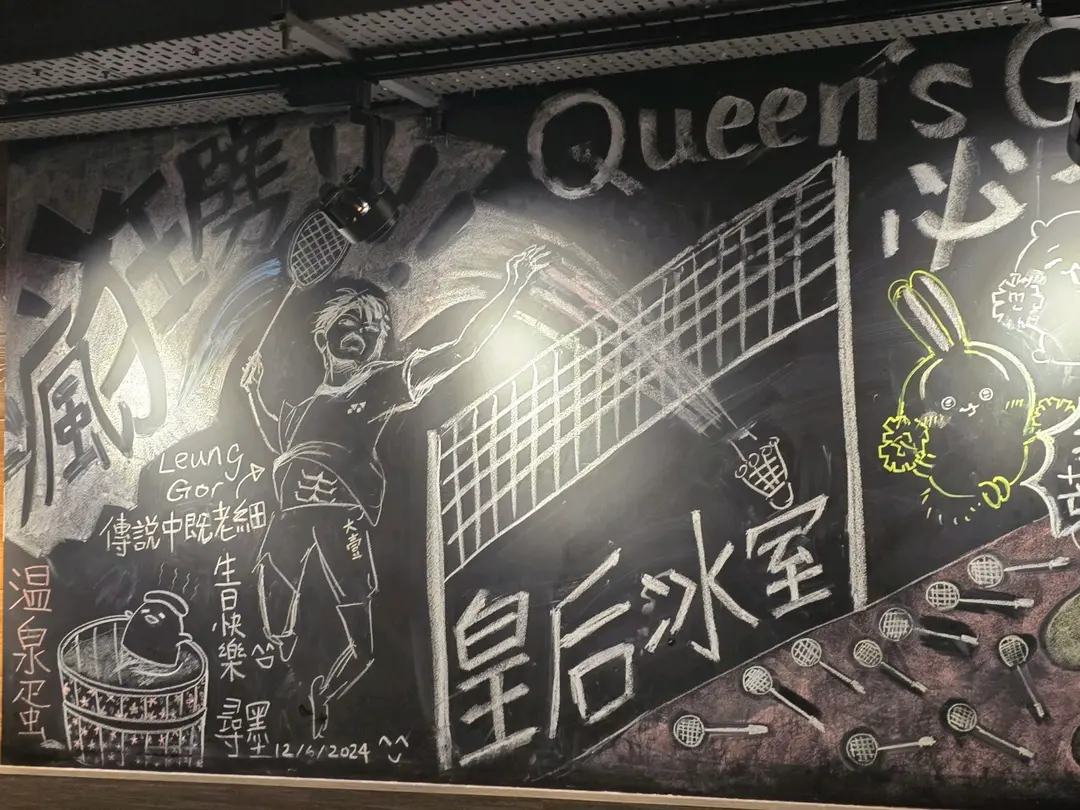 Queen's G
必
瘋狂
勝!!
Leung
Gor
傳說中既老細
大壹
生日快樂
尋墨
12/6/2024
溫泉蛋
皇后冰室